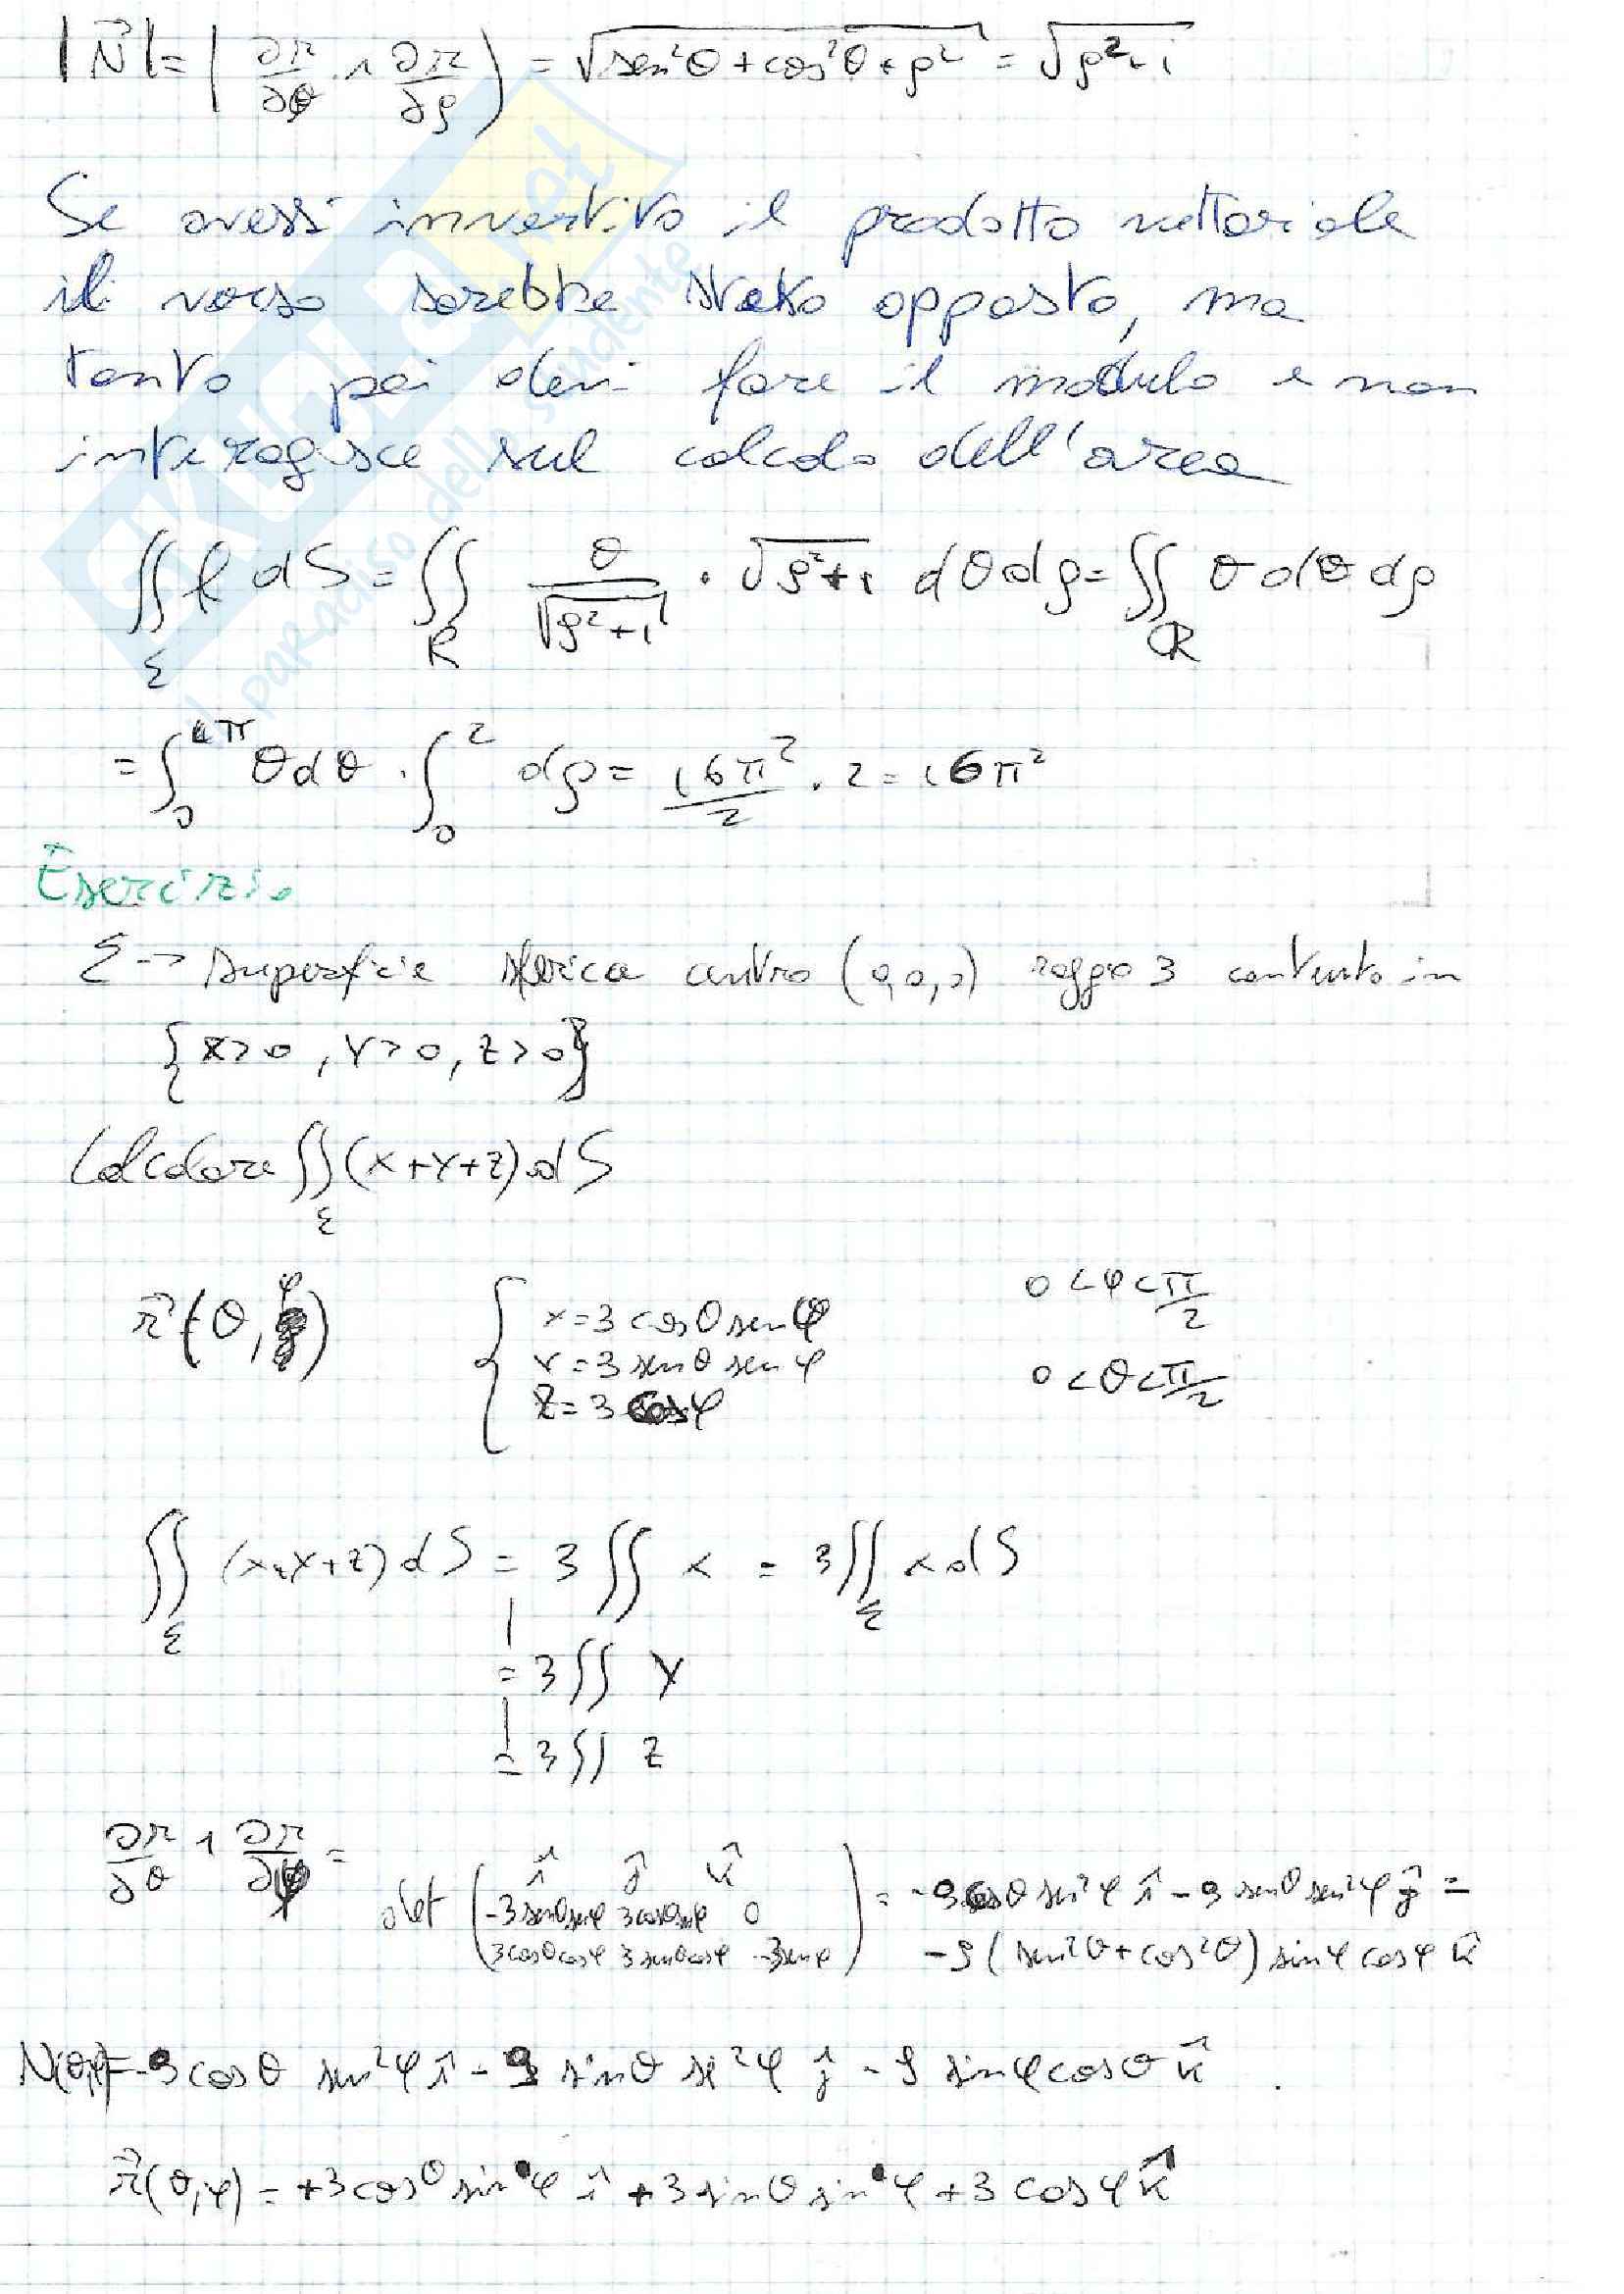 |N⃗| = |∂r/∂θ ∧ ∂r/∂ρ) = √(sen²θ + cos²θ + ρ²) = √(ρ²+1)
Se avessi invertito il prodotto vettoriale
il verso sarebbe stato opposto, ma
tanto poi devi fare il modulo e non
interagisce sul calcolo dell'area
∬_Σ f dS = ∬_R θ/√(ρ²+1) · √(ρ²+1) dθdρ = ∬_R θ dθ dρ
= ∫₀^{4π} θdθ · ∫₀² dρ = 16π²/2 · 2 = 16π²
Esercizio
Σ → superficie sferica centro (0,0,0) raggio 3 contenuta in
{x>0, y>0, z>0}
Calcolare ∬_Σ (x+y+z) dS
r⃗(θ,φ) { x=3 cosθ senφ 0<φ<π/2
y=3 senθ senφ 0<θ<π/2
z=3 cosφ
∬_Σ (x+y+z)dS = 3∬ x = 3∬_Σ x dS
= 3∬ y
= 3∬ z
∂r/∂θ ∧ ∂r/∂φ = det ( î ĵ k̂
-3senθsenφ 3cosθsenφ 0
3cosθcosφ 3senθcosφ -3senφ ) = -9cosθ sen²φ î - 9 senθ sen²φ ĵ =
-9(sen²θ+cos²θ) sinφ cosφ k̂
N(θ,φ)= -9cosθ sen²φ î - 9 sinθ se²φ ĵ - 9 sinφ cosθ k̂
r⃗(θ,φ) = +3cosθ sinφ î + 3sinθ sinφ + 3 cosφ k̂
SKUOLA.net
il paradiso dello studente